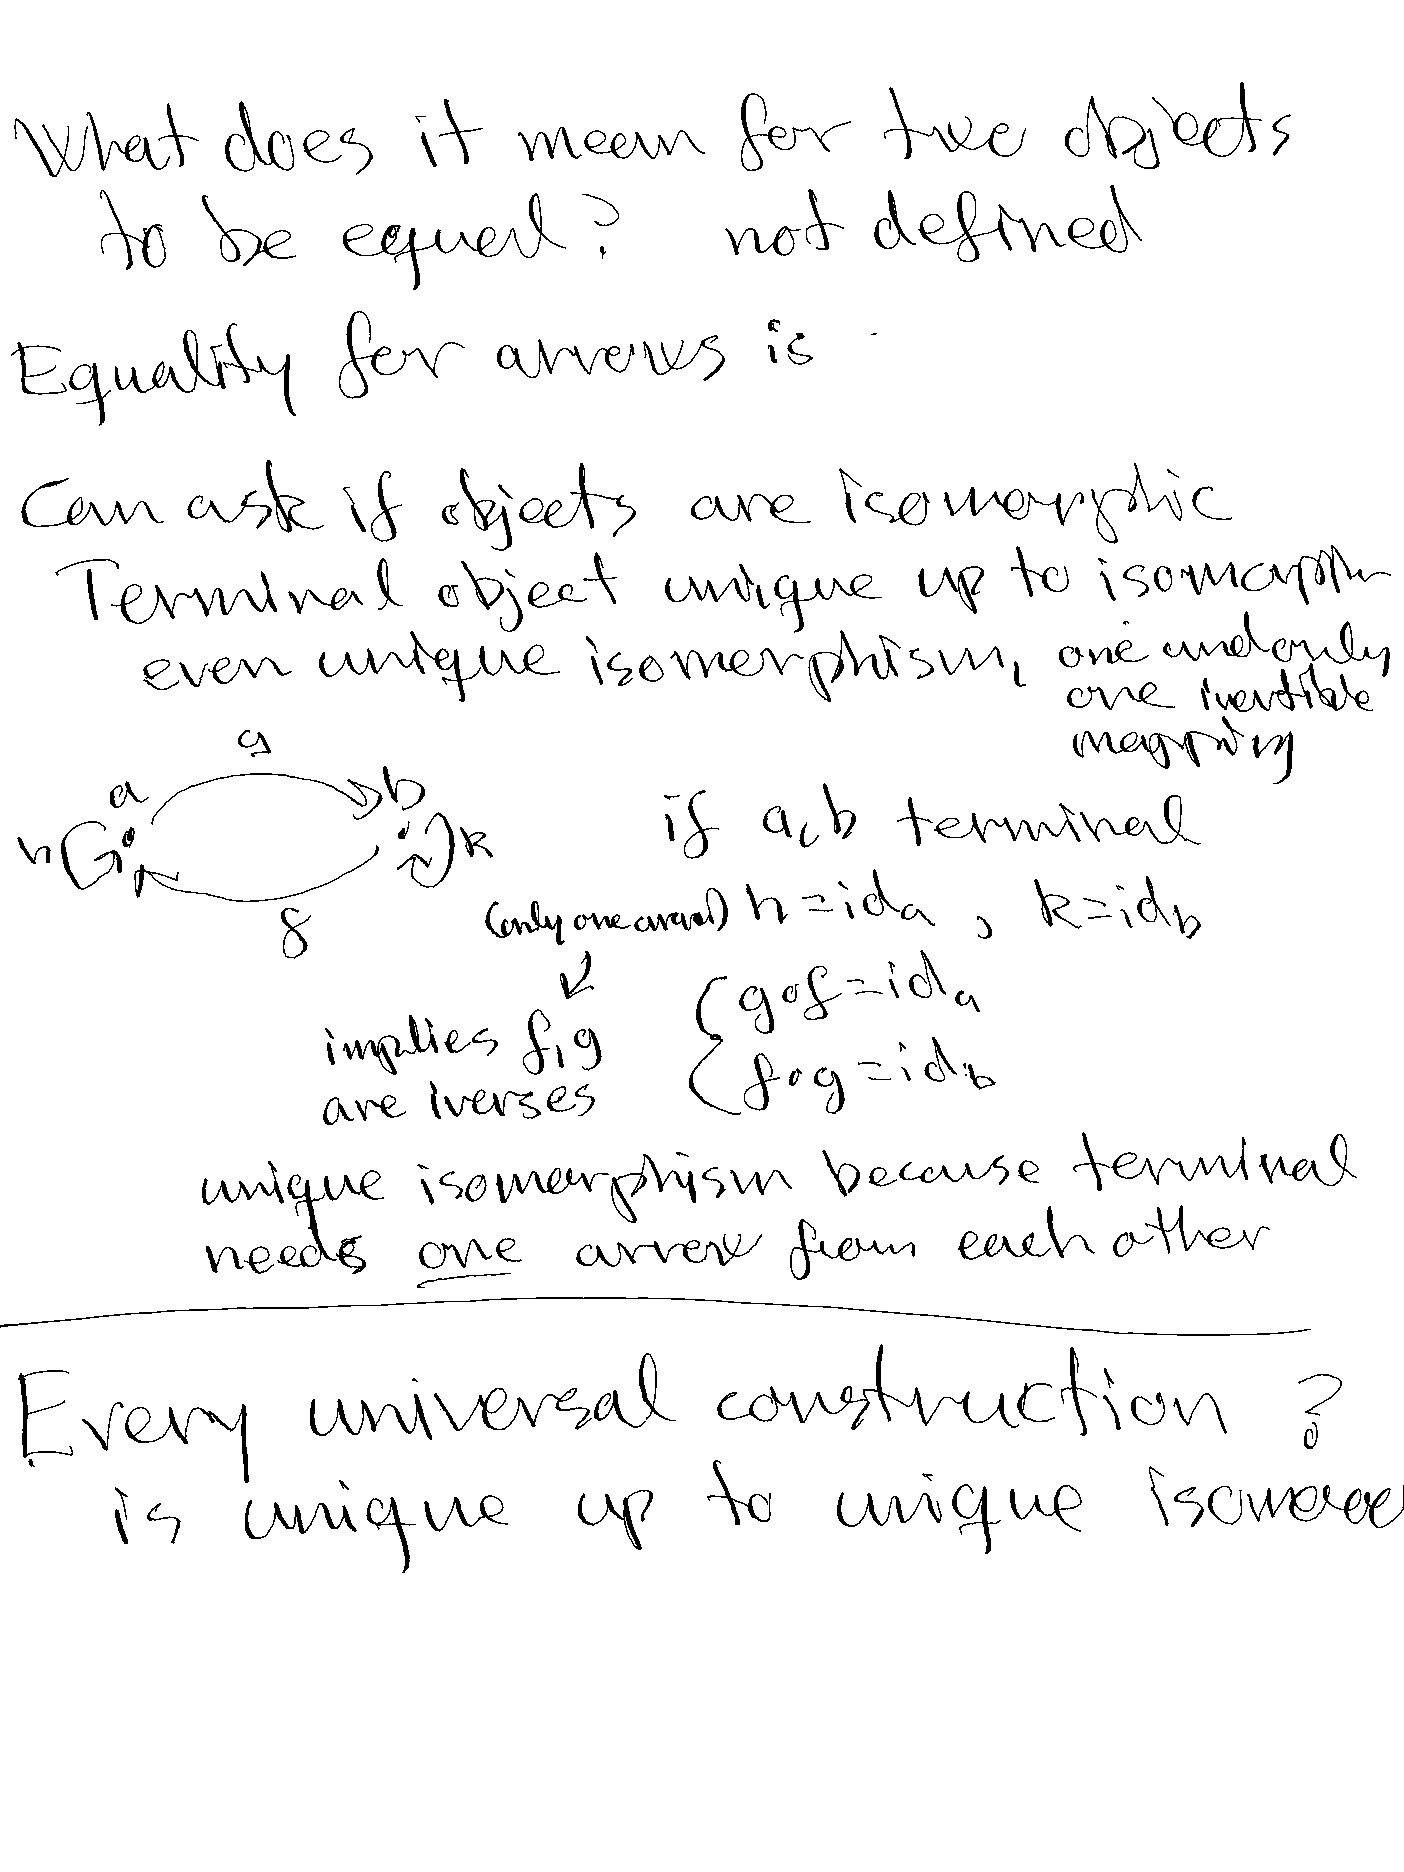 What does it mean for two objects
to be equal? not defined
Equality for arrows is
Can ask if objects are isomorphic
Terminal object unique up to isomorphm
even unique isomorphism, one and only
one ivertible
mapping
g
a b
h k
f
if a, b terminal
(only one arrow) h = id_a , k = id_b
g∘f = id_a
implies f, g
f∘g = id_b
are iverses
unique isomorphism because terminal
needs one arrow from each other
Every universal construction ?
is unique up to unique